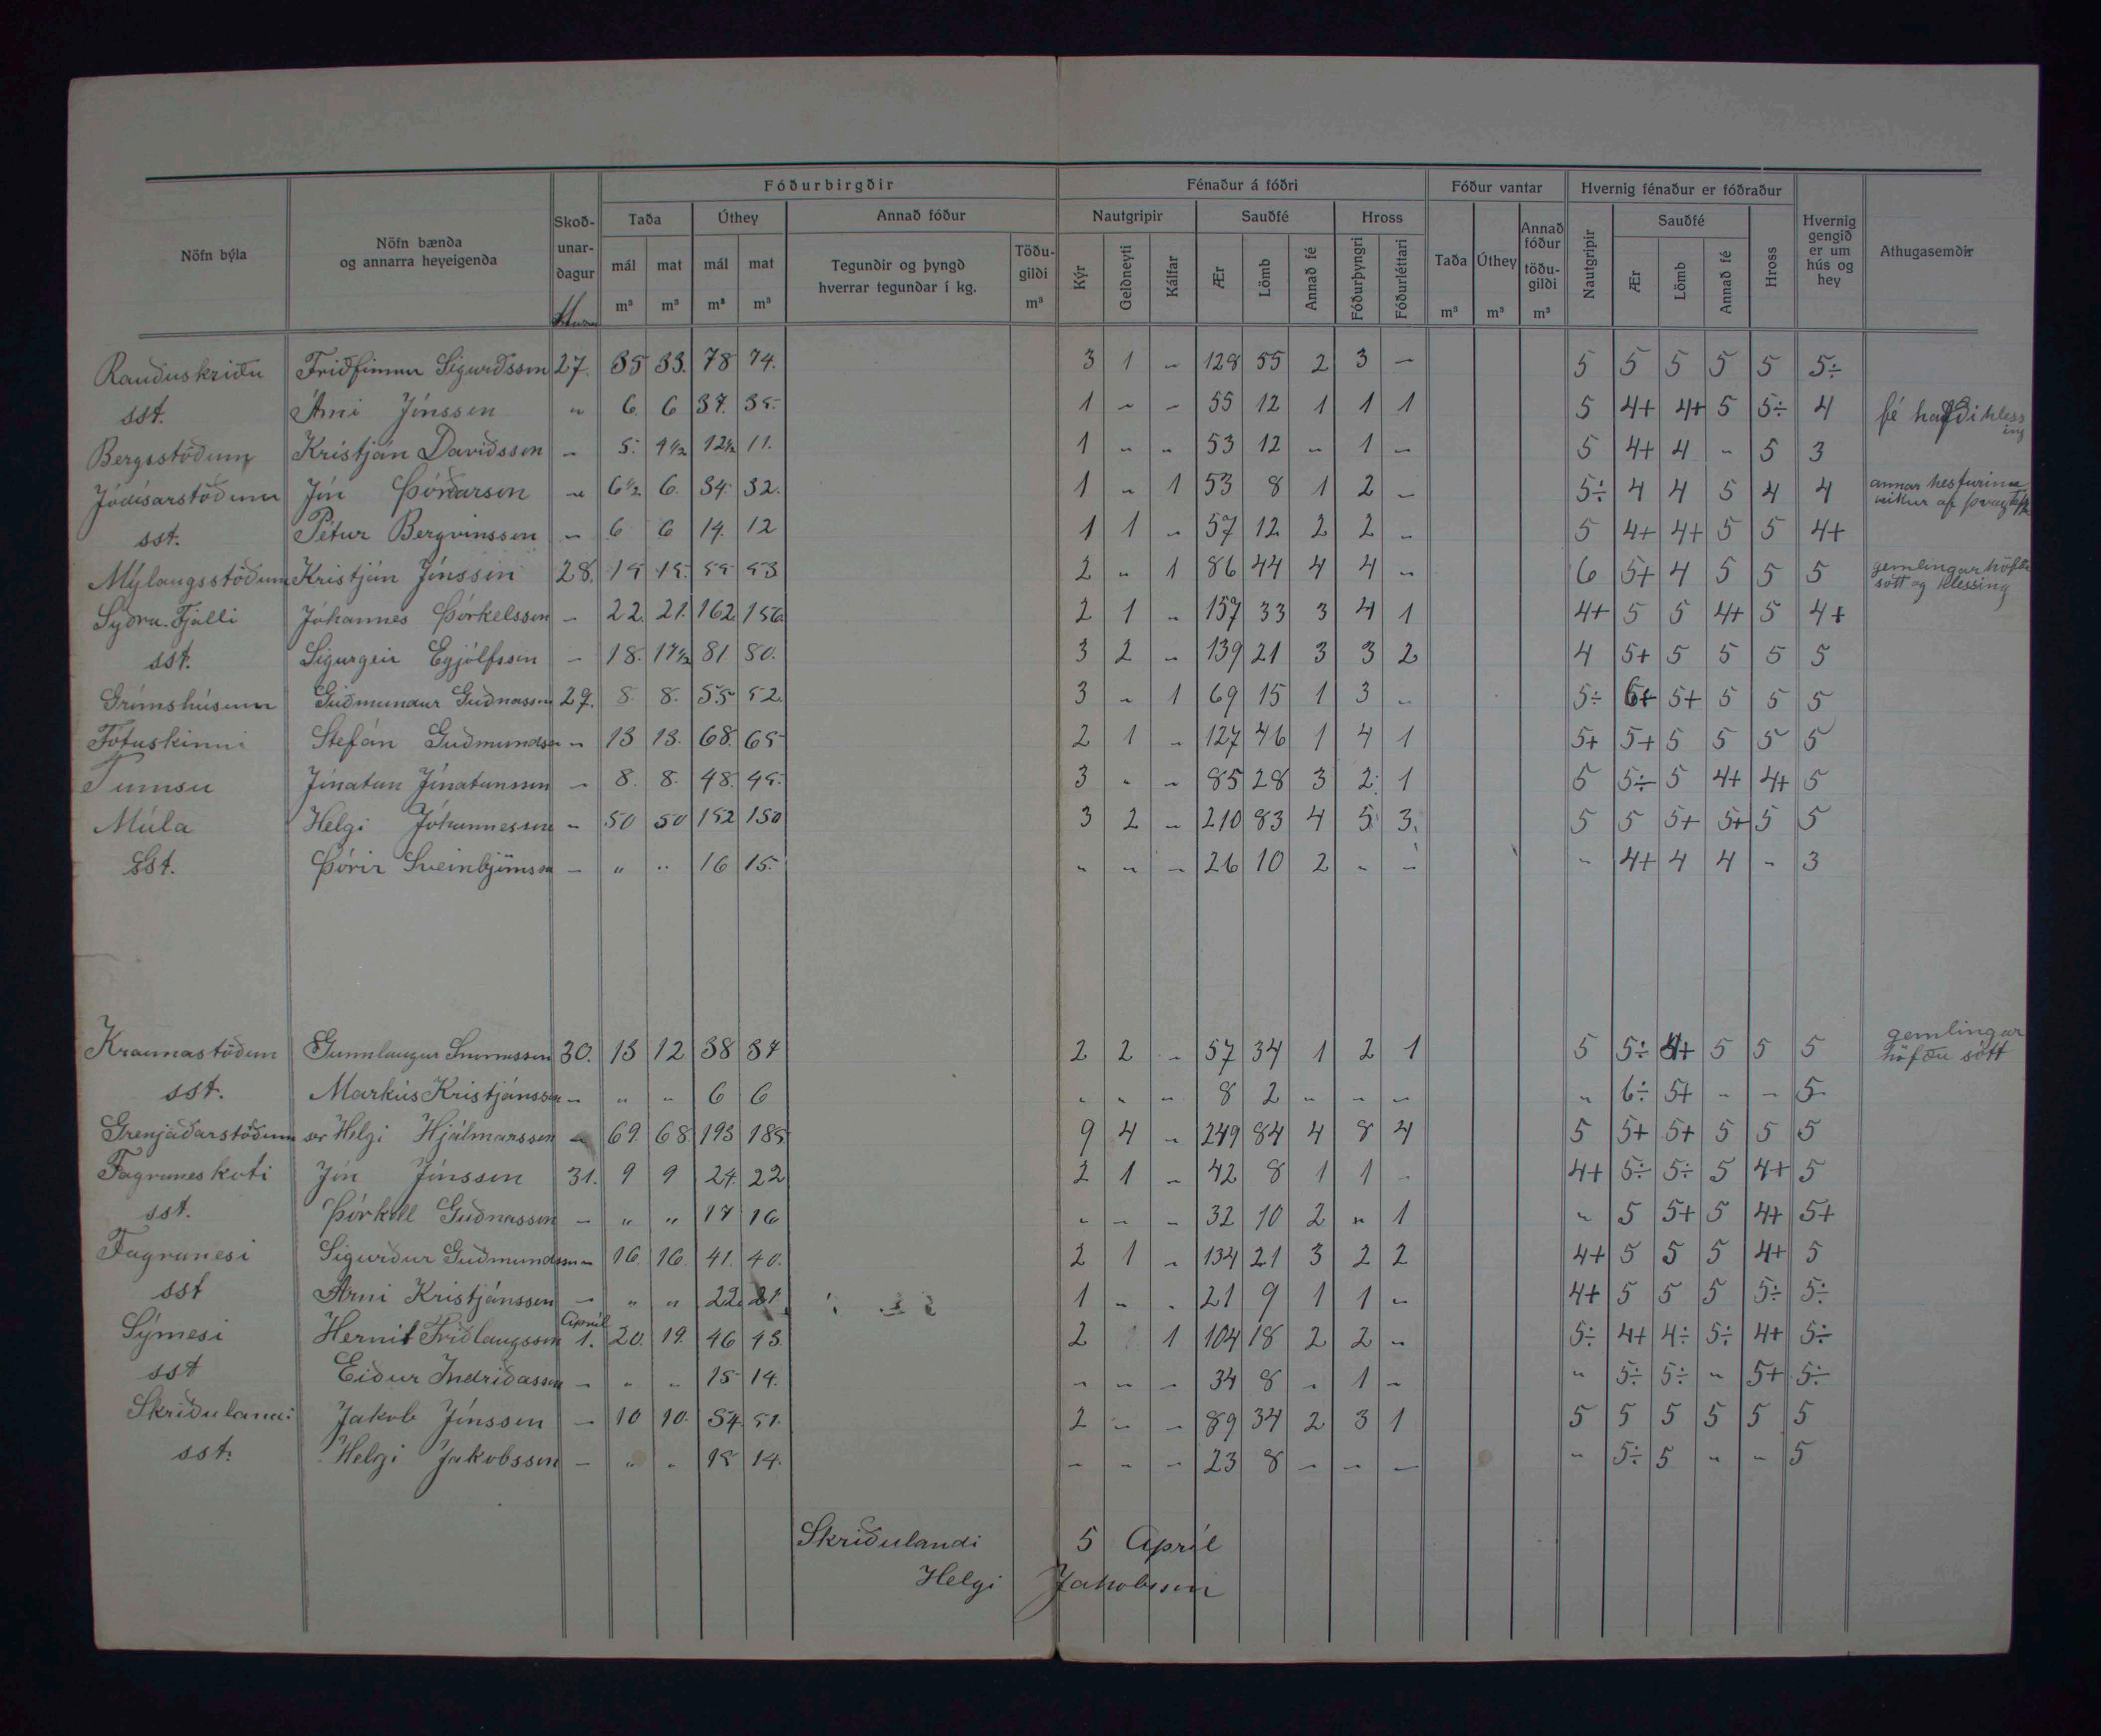 Fóðurbirgðir Fénaður á fóðri Fóður vantar Hvernig fénaður er fóðraður
Nöfn býla Nöfn bænda og annarra heyeigenda Skoðunardagur Taða Úthey Annað fóður Nautgripir Sauðfé Hross Taða Úthey Annað fóður töðugildi Nautgripir Sauðfé Hross Hvernig gengið er um hús og hey Athugasemdir
mál mat mál mat Tegundir og þyngd hverrar tegundar í kg. Töðugildi Kýr Geldneyti Kálfar Ær Lömb Annað fé Fóðurþyngri Fóðurléttari Ær Lömb Annað fé
m³ m³ m³ m³ m³ m³ m³ m³
Rauðuskriðu Friðfinnur Sigurðsson 27. 35 33. 78 74. 3 1 " 128 55 2 3 – 5 5 5 5 5 5÷
sst. Árni Jónsson " 6. 6 37. 35. 1 " – 55 12 1 1 1 5 4+ 4+ 5 5÷ 4 fé hafði kless
ing
Bergsstöðum Kristján Davíðsson – 5. 4½ 12½ 11. 1 " " 53 12 " 1 – 5 4+ 4 " 5 3
Jódísarstöðum Jón Þórðarson " 6½ 6. 34. 32. 1 " 1 53 8 1 2 – 5÷ 4 4 5 4 4 annar hesturinn
veikur af
sst. Pétur Bergvinsson " 6 6 14. 12 1 1 " 57 12 2 2 " 5 4+ 4+ 5 5 4+
Mýlaugsstöðum Kristján Jónsson 28. 15 15. 55 53 2 " 1 86 44 4 4 " 6 5+ 4 5 5 5 gemlingar höfðu
sótt og klessing
Syðra-Fjalli Jóhannes Þórkelsson – 22. 21. 162. 156. 2 1 " 157 33 3 4 1 4+ 5 5 4+ 5 4+
sst. Sigurgeir Eyjólfsson – 18. 17½ 81 80. 3 2 " 139 21 3 3 2 4 5+ 5 5 5 5
Grímshúsum Guðmundur Guðnason 29. 8. 8. 55 52. 3 " 1 69 15 1 3 " 5÷ 6+ 5+ 5 5 5
Fótaskinni Stefán Guðmundsson " 13 13. 68. 65 2 1 " 127 46 1 4 1 5+ 5+ 5 5 5 5
Tumsu Jónatan Jónatansson – 8. 8. 48. 45. 3 " " 85 28 3 2 1 5 5÷ 5 4+ 4+ 5
Múla Helgi Jóhannesson – 50 50 152 150 3 2 " 210 83 4 5 3 5 5 5+ 5+ 5 5
sst. Þórir Sveinbjörnsson – " " 16 15. " " – 26 10 2 " – " 4+ 4 4 " 3
Kraunastöðum Gunnlaugur Snorrason 30. 13 12 38 34 2 2 " 57 34 1 2 1 5 5÷ 4+ 5 5 5 gemlingar
höfðu sótt
sst. Markús Kristjánsson – " " 6 6 " " " 8 2 " – – " 6÷ 5+ – – 5
Grenjaðarstöðum sr Helgi Hjálmarsson – 69. 68. 193 185 9 4 " 249 84 4 8 4 5 5+ 5+ 5 5 5
Fagraneskoti Jón Jónsson 31. 9 9 24. 22 2 1 – 42 8 1 1 – 4+ 5÷ 5÷ 5 4+ 5
sst. Þórkell Guðnason – " " 17 16 " – – 32 10 2 " 1 " 5 5+ 5 4+ 5+
Fagranesi Sigurður Guðmundsson " 16. 16. 41. 40. 2 1 " 134 21 3 2 2 4+ 5 5 5 4+ 5
sst Árni Kristjánsson – " " 22. 21. 1 " " 21 9 1 1 " 4+ 5 5 5 5÷ 5÷
Apríl
Sýrnesi Hernit Friðlaugsson 1. 20. 19. 46 43. 2 1 104 18 2 2 " 5÷ 4+ 4÷ 5÷ 4+ 5÷
sst Eiður Indriðason – " " 15 14. " " – 34 8 " 1 – " 5÷ 5÷ " 5+ 5÷
Skriðulandi Jakob Jónsson – 10 10. 54. 51. 2 " – 89 34 2 3 1 5 5 5 5 5 5
sst. Helgi Jakobsson – " " 15 14. – – – 23 8 – – – " 5÷ 5 " " 5
Skriðulandi 5 Apríl
Helgi Jakobsson